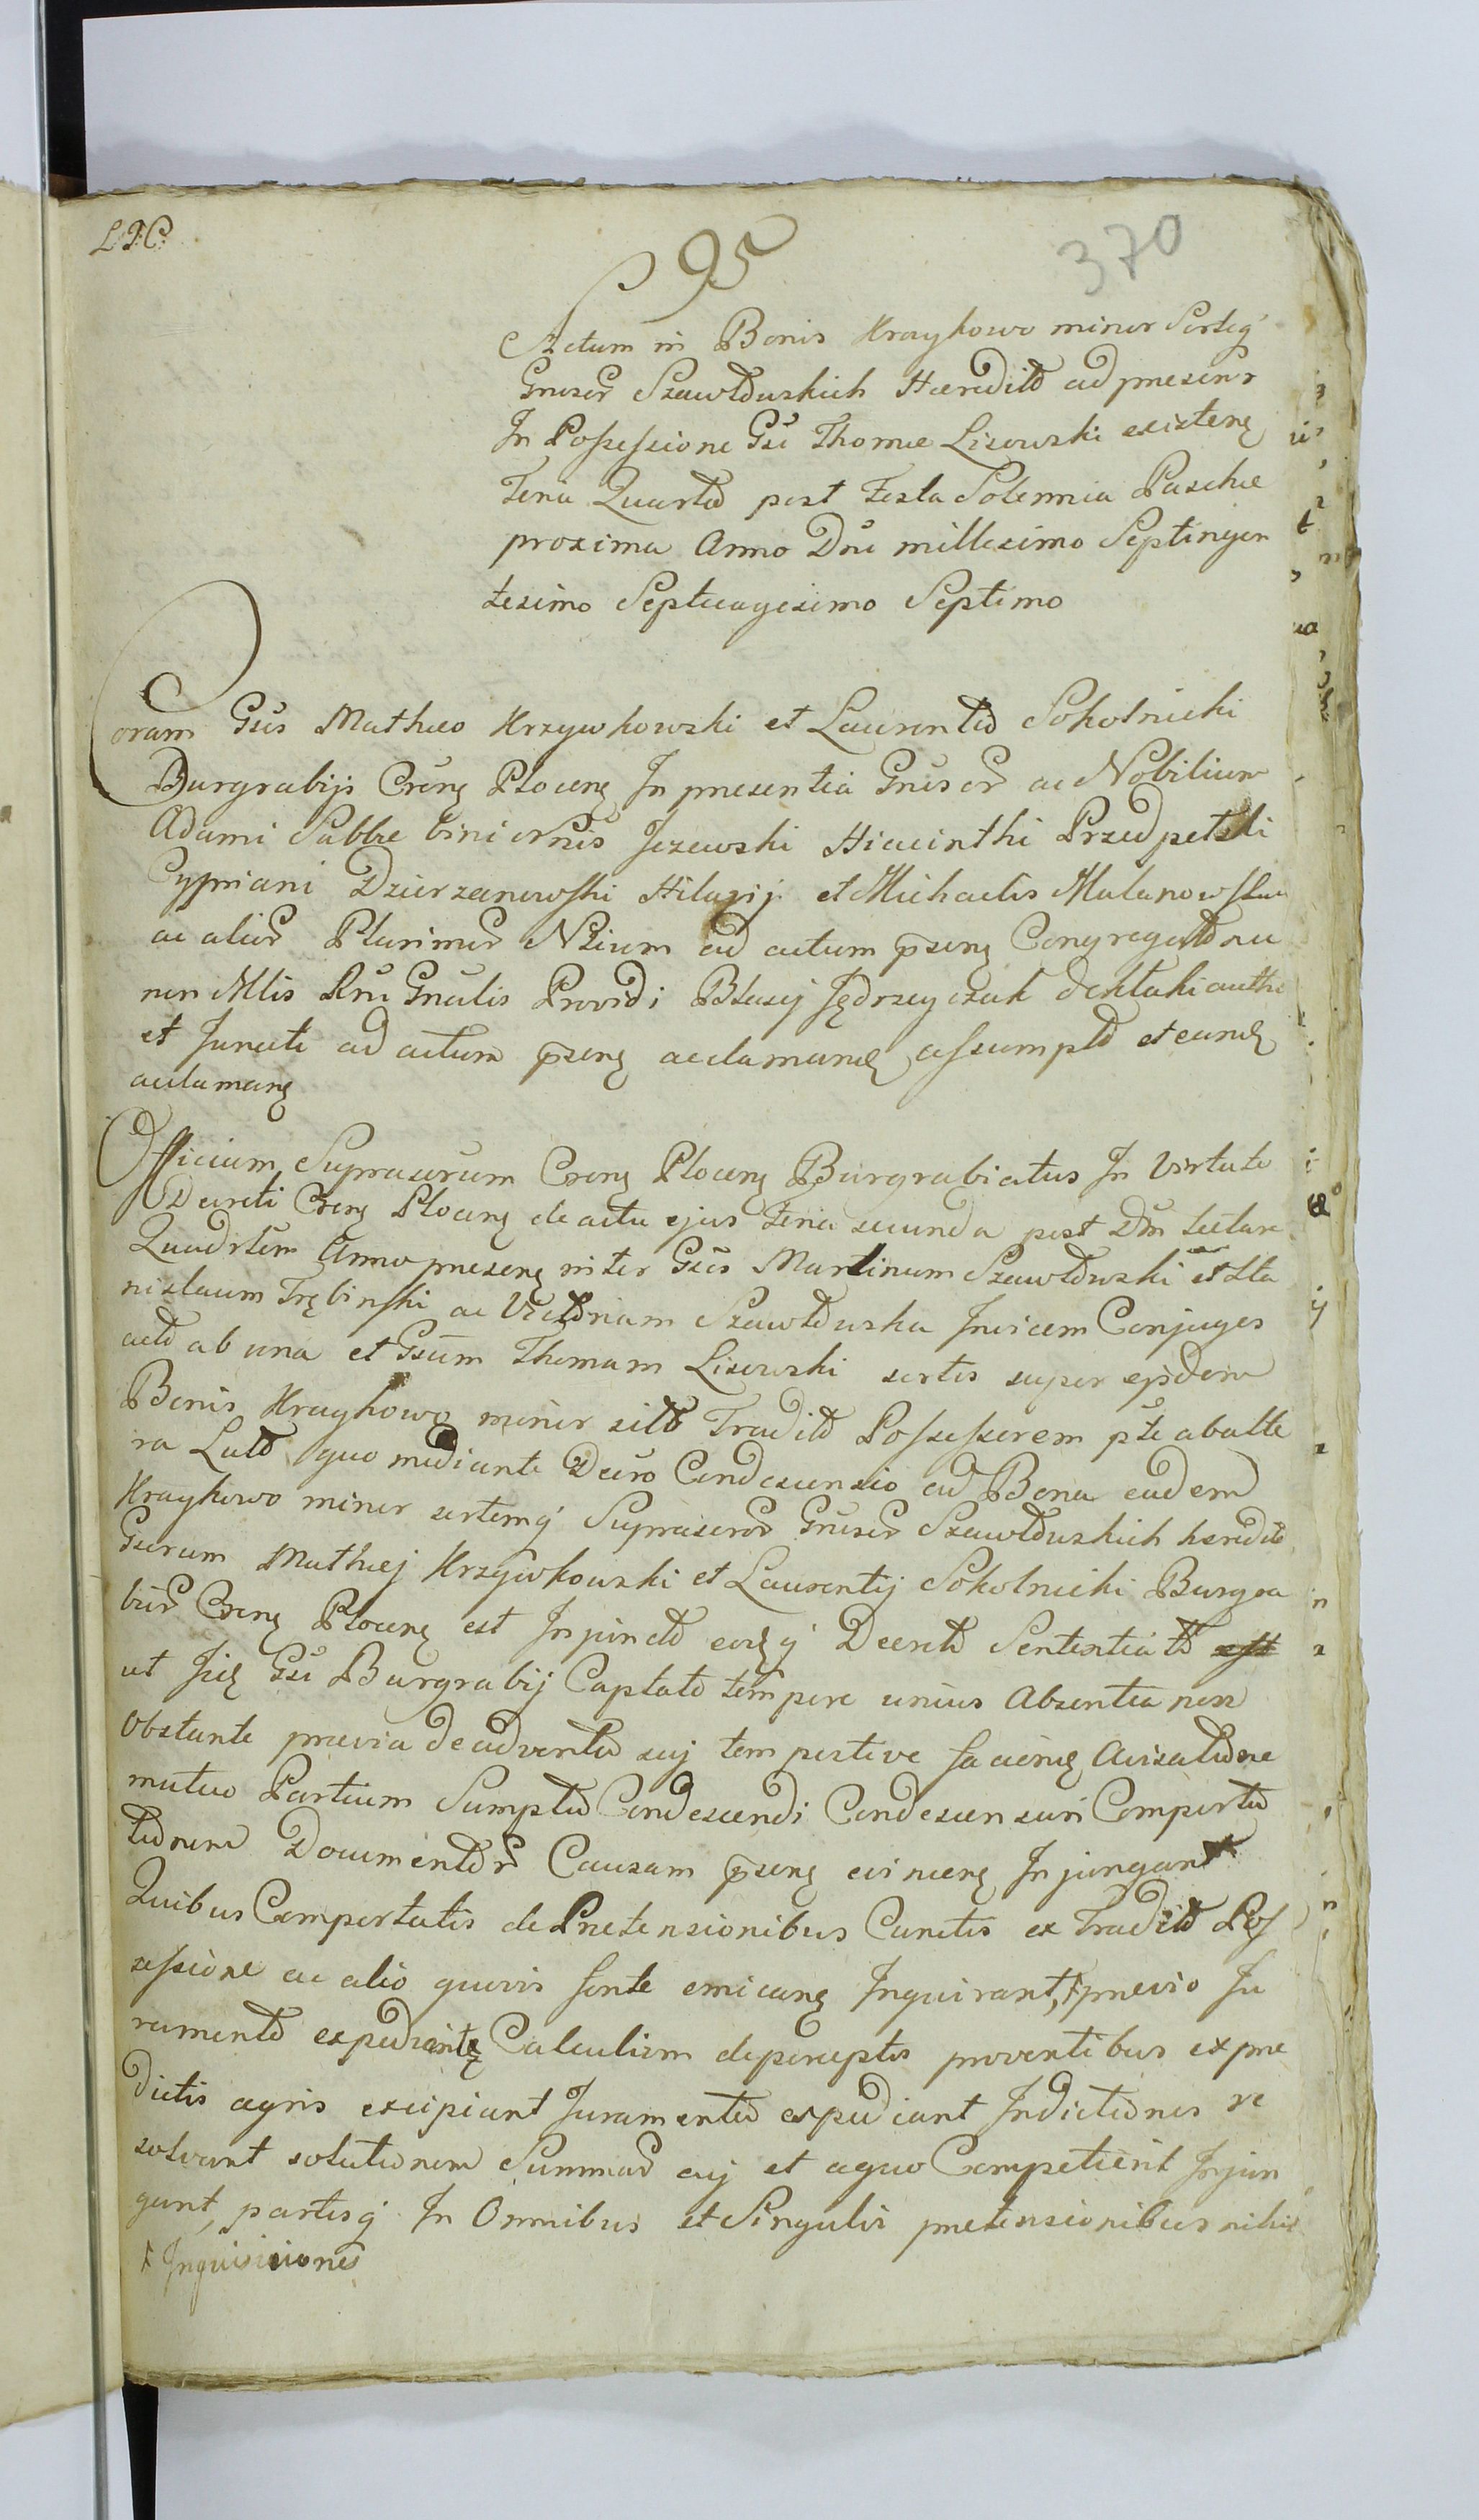 L.I.C.
95
370
Actum in Bonis Kraykowo minor Sorteq
Gnuser Szawłowskich Haeredită ad praesens
In Possessione Gsi Thomae Lisowski existenꝫ
Feria Quarta post Festa Solennia Paschae
proxima Anno Dni millesimo Septingen
tesimo Septuagesimo Septimo
Coram Gsis Mathaeo Krzywkowski et Laurentio Sokolnicki
Burgrabijs Crenꝫ Plocenꝫ In praesentia ac Nobilium
Adami Jezewski Hiacinthi Przedpełski
Cypriani Dzierzanowski Hilarij et Michaelis Malanowskie
ac alior Plurimor Nlium ad actum p̄senꝫ Congregato nec
non Mlis Rni Gnalis Providi Blasij Jędrzeyczak
et Jurati ad actum p̄senꝫ acclamandꝫ assumpto et eundꝫ
acclamanꝫ
Officium Suprascrum Crenꝫ Plocenꝫ Burgrabiatus In Virtute
Decreti Crenꝫ Plocenꝫ de actu ejus Feria secunda post Dm laetare
Quadrlem Anno praesenꝫ inter Gsos Martinum Szawłowski et Sta
nislaum Trębinski ac Victoriam Szawłowska Invicem Conjuges
acto ab una et Gsum Thomam Lisowski sortis super ejsdem
Bonis Kraykowo minor sito Tradito Possessorem pte ab alte
ra Lato quo mediante Decro Condescensio ad Bona eadem
Kraykowo minor sortemq Suprascror Gnuser Szawłowskich heredită
Gsorum Mathaej Krzywkowski et Laurentij Sokolnicki Burgra
bior Crenꝫ Plocenꝫ est Injuncto eosqꝫ Decreto Sententiato est
ut Jidꝫ Gsi Burgrabij Captato tempore unius Absentia non
Obstante praevia de adventu suj tempestive faciendꝫ Avisatione
mutuo Partium Sumptu Condescendi Condescensuri Comporta
tionem Documentor Causam p̄senꝫ evincenꝫ Injungant
Quibus Comportatis de Praetensionibus Cunctis ex Tradito Pos
sessione ac alio quovis fonte emicanꝫ Inquirant, ŧ praevio Ju
ramento expediantꝫ Calculum de perceptis proventibus ex prae
dictis agris excipiant Juramenta expediant Indictiones re
solvant solutionem Summar cuj et a quo Competierit Injun
gant, partesq In Omnibus et Singulis praetensionibus nihil
ŧ Inquisiciones